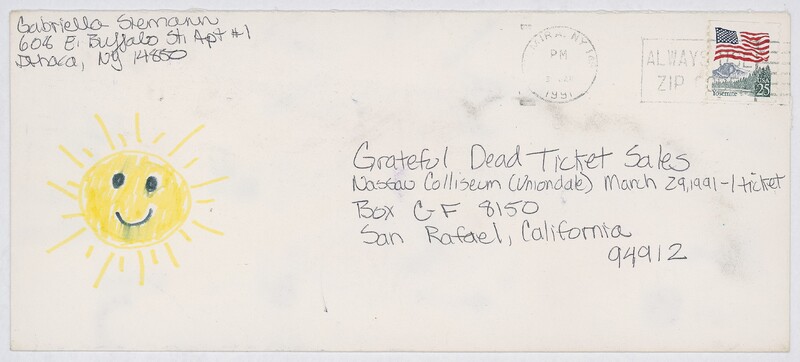 Gabriella Siemann
606 E. Buffalo St. Apt #1
Ithaca, NY 14850
PM
1991
ALWAYS USE
ZIP
USA
25
Yosemite
Grateful Dead Ticket Sales
Nassau Colliseum (Uniondale) March 29, 1991 - 1 ticket
Box CF 8150
San Rafael, California
94912